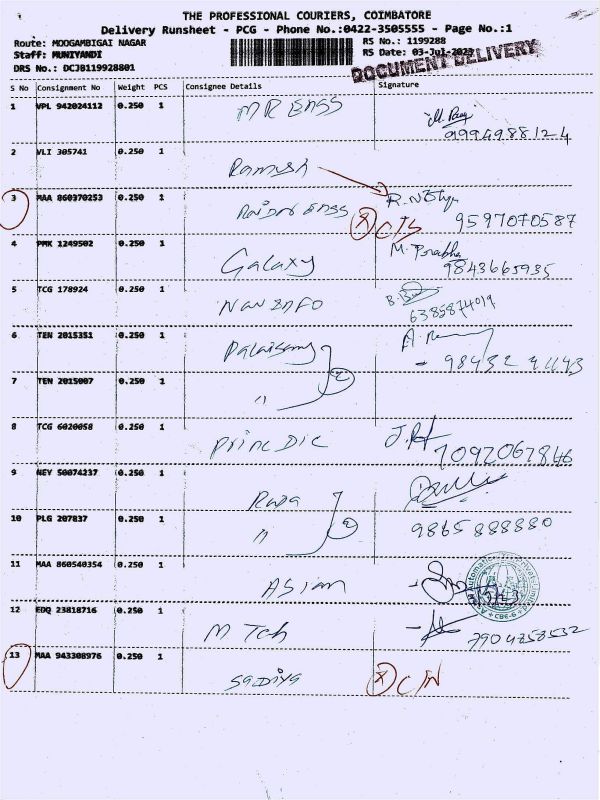 THE PROFESSIONAL COURIERS, COIMBATORE
Delivery Runsheet - PCG - Phone No.:0422-3505555 - Page No.:1
Route: MOOGAMBIGAI NAGAR
RS No.: 1199288
Staff: MUNIYANDI
RS Date: 03-Jul-2023
DRS No.: DCJ0119928801
DOCUMENT DELIVERY
S No Consignment No Weight PCS Consignee Details Signature
1 VPL 942024112 0.250 1 M R ENGS
9994988124
2 VLI 305741 0.250 1 Ramesh
3 MAA 860370253 0.250 1
9597070587
4 PMK 1249502 0.250 1 Galaxy M. Prabha
9843665935
5 TCG 178924 0.250 1 NAV INFO
6385874019
6 TEN 2015351 0.250 1 Palaisamy
7 TEN 2015007 0.250 1 "
8 TCG 6020058 0.250 1 Princ Die
7092067846
9 NEY 50074237 0.250 1 Raja
10 PLG 207837 0.250 1 "
9865888880
11 MAA 860540354 0.250 1 Asian
12 EDQ 23818716 0.250 1 M Tch
7904858532
13 MAA 943308976 0.250 1 Sadiya C/N